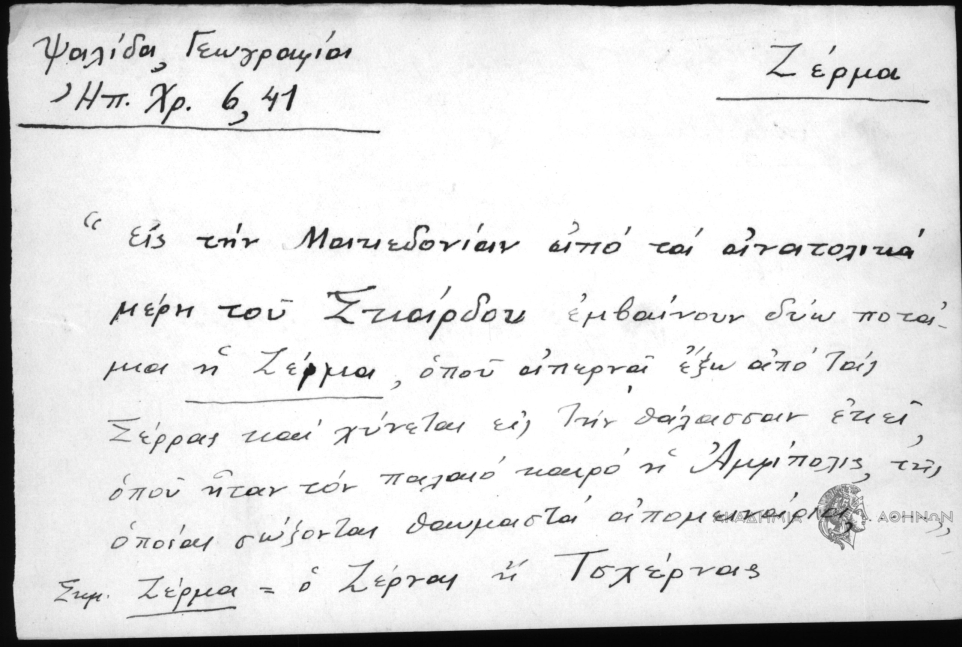 Ψαλίδα, Γεωγραφία
Ἠπ. Χρ. 6, 41
Ζέρμα
“εἰς τήν Μακεδονίαν ἀπό τά ἀνατολικά
μέρη τοῦ Σκάρδου ἐμβαίνουν δύω ποτά-
μια ἡ Ζέρμα, ὁποῦ ἀπερνᾶ ἔξω ἀπό τάς
Σέρρας καί χύνεται εἰς τήν θάλασσαν ἐκεῖ,
ὁποῦ ἦταν τόν παλαιό καιρό ἡ Ἀμφίπολις, τῆς
ὁποίας σώζονται θαυμαστά ἀπομεινάρια, ....,
ΑΚΑΔΗΜΙΑ ΑΘΗΝΩΝ
Σημ. Ζέρμα = ὁ Ζέρνας ἤ Τσχέρνας